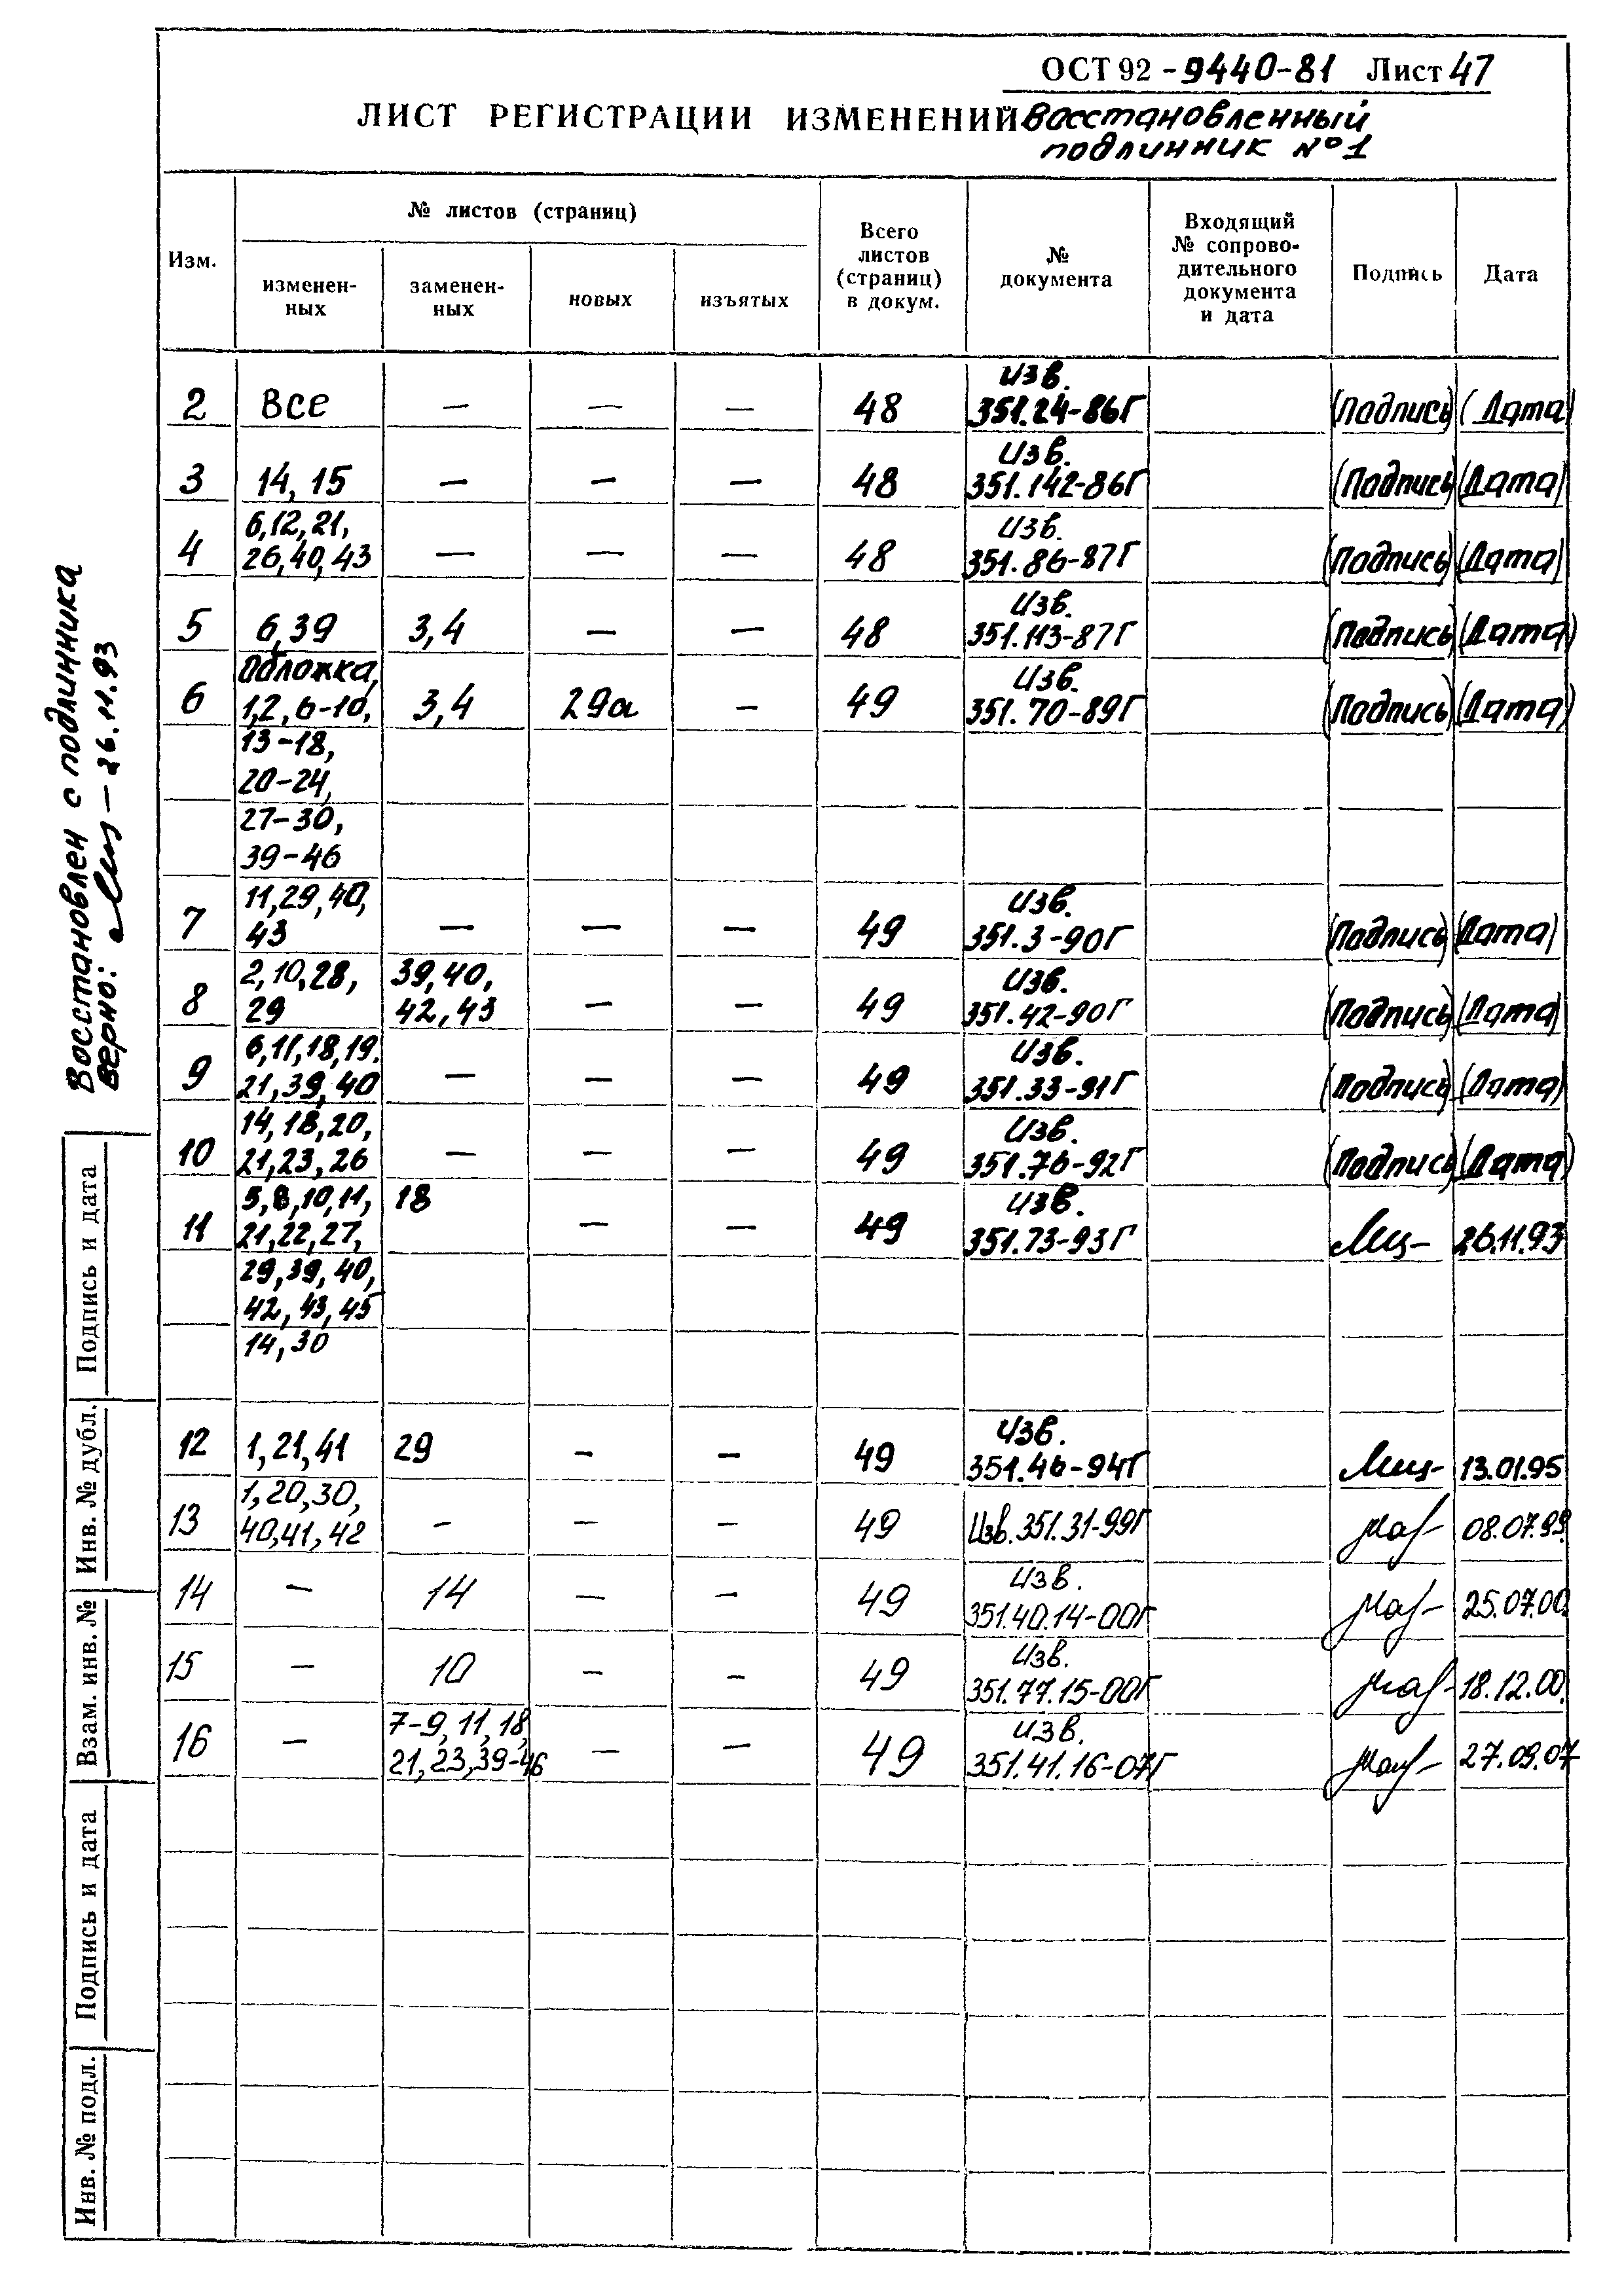 ОСТ 92 -9440-81 Лист 47
ЛИСТ РЕГИСТРАЦИИ ИЗМЕНЕНИЙ Восстановленный
подлинник №1
Изм.
№ листов (страниц)
изменен-
ных
заменен-
ных
новых
изъятых
Всего
листов
(страниц)
в докум.
№
документа
Входящий
№ сопрово-
дительного
документа
и дата
Подпись
Дата
Изв.
2 Все — — — 48 351.24-86Г (Подпись) (Дата)
Изв.
3 14, 15 — — — 48 351.142-86Г (Подпись) (Дата)
6,12,21, Изв.
4 26,40,43 — — — 48 351.86-87Г (Подпись) (Дата)
Изв.
5 6,39 3,4 — — 48 351.113-87Г (Подпись) (Дата)
Обложка, Изв.
6 1,2,6-10, 3,4 29а — 49 351.70-89Г (Подпись) (Дата)
13-18,
20-24,
27-30,
39-46
11,29,40, Изв.
7 43 — — — 49 351.3-90Г (Подпись) (Дата)
2,10,28, 39,40, Изв.
8 29 42,43 — — 49 351.42-90Г (Подпись) (Дата)
6,11,18,19. Изв.
9 21,39,40 — — — 49 351.33-91Г (Подпись) (Дата)
14,18,20, Изв.
10 21,23,26 — — — 49 351.76-92Г (Подпись) (Дата)
5,8,10,11, 18 Изв.
11 21,22,27, — — 49 351.73-93Г 26.11.93
29,39,40,
42,43,45
14,30
Изв.
12 1,21,41 29 — — 49 351.46-94Г 13.01.95
1,20,30,
13 40,41,42 — — — 49 Изв.351.31-99Г 08.07.99
Изв.
14 — 14 — — 49 351.40.14-00Г 25.07.00
Изв.
15 — 10 — — 49 351.77.15-00Г 18.12.00
7-9,11,18, Изв.
16 — 21,23,39-46 — — 49 351.41.16-07Г 27.09.07
Восстановлен с подлинника
верно: — 26.11.93
Подпись и дата
Инв. № дубл.
Взам. инв. №
Подпись и дата
Инв. № подл.